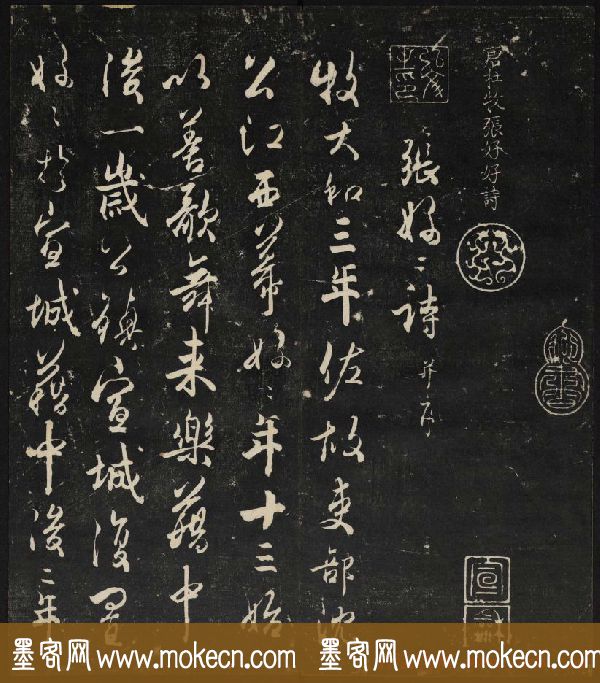 唐杜牧張好好詩
張好〻詩 并序
牧大和三年佐故吏部沈
公江西幕好〻年十三始
以善歌舞来樂籍中
後一歲公鎮宣城復置
好〻於宣城籍中後二年
墨客网 www.mokecn.com 墨客网 www.mokecn.com